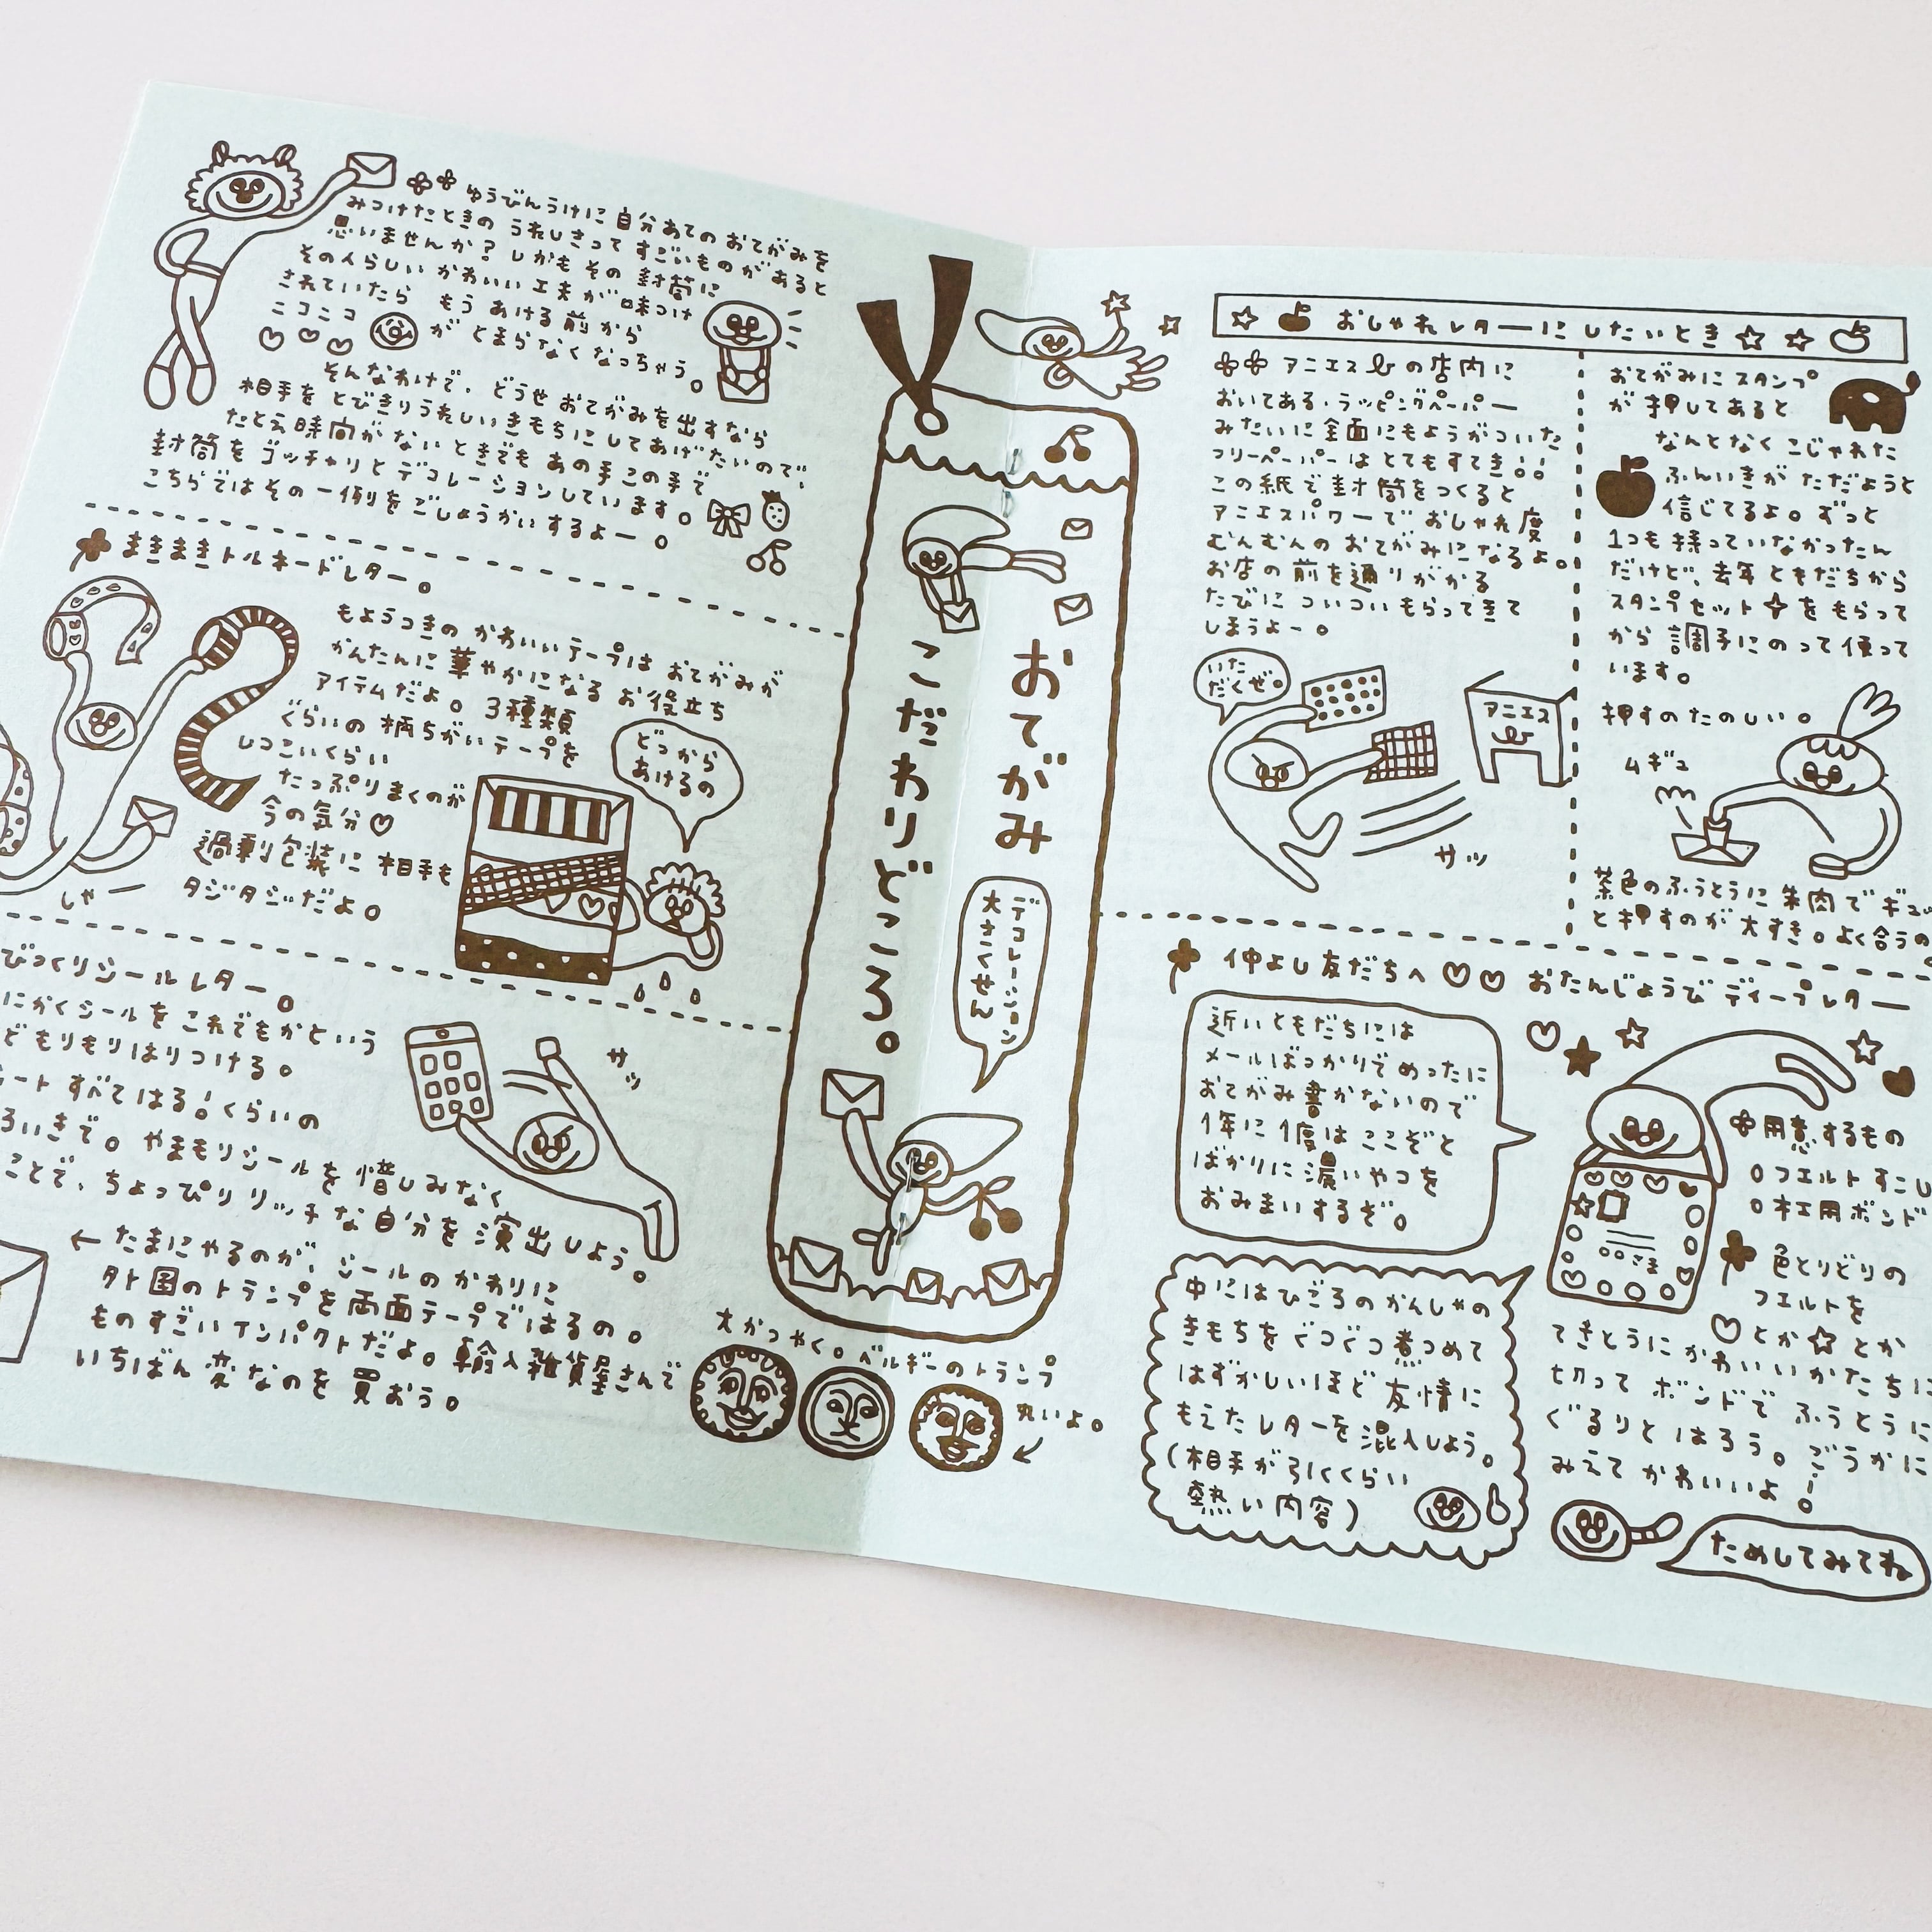 ゆうびんうけに 自分あての おてがみを
みつけたときの うれしさって すごいものがあると
思いませんか? しかも その 封筒に
その人らしい かわいい 工夫が 味つけ
されていたら もう あける前から
ニコニコ が とまらなくなっちゃう。
そんなわけで、どうせ おてがみを出すなら
相手を とびきりうれしいきもちにしてあげたいので、
たとえ時間がないときでも あの手この手で
封筒を ゴッチャリと デコレーションしています。
こちらではその一例をごしょうかいするよー。
まきまきトルネードレター。
もようつきの かわいいテープは おてがみが
かんたんに 華やかになる お役立ち
アイテムだよ。3種類
ぐらいの 柄ちがいテープを
しつこいくらい
たっぷりまくのが
今の気分♡
過剰包装に 相手も
タジタジだよ。
しゃー
どっから
あけるの
びっくりシールレター。
にかくシールを これでもかという
ど もりもりはりつける。
ート すべてはる!くらいの
ろいきで。やまもりシールを 惜しみなく
ことで、ちょっぴりリッチな自分を 演出しよう。
サッ
← たまにやるのが、シールの かわりに
外国のトランプを両面テープではるの。
ものすごいインパクトだよ。輸入雑貨屋さんで
いちばん 変なのを 買おう。
大かつやく。ベルギーのトランプ
丸いよ。
おてがみ
こだわりどころ。
デコレーション
大さくせん
☆ おしゃれレターにしたいとき ☆ ☆
アニエスbの店内に
おいてある、ラッピングペーパー
みたいに全面にもようがついた
フリーペーパーは とてもすてき!!
この紙で封筒をつくると
アニエスパワーで おしゃれ度
むんむんの おてがみになるよ。
お店の前を通りがかる
たびに ついつい もらってきて
しまうよー。
いた
だくぜ。
アニエス
b
サッ
おてがみにスタンプ
が押してあると
なんとなく こじゃれた
ふんいきが ただようと
信じてるよ。ずっと
1つも持っていなかったん
だけど、去年 ともだちから
スタンプセット をもらって
から 調子にのって使って
います。
押すのたのしい。
ムギュ
茶色のふうとうに 朱肉で ギュッ
と押すのが 大すき。よく合うの
仲よし友だちへ ♡♡ おたんじょうび ディープレター
近いともだちには
メールばっかりで めったに
おてがみ書かないので
1年に1度は ここぞと
ばかりに 濃いやつを
おみまいするぞ。
中にはひごろの かんしゃの
きもちを ぐつぐつ煮つめて
はずかしいほど 友情に
もえたレターを 混入しよう。
(相手が引くくらい
熱い内容)
用意するもの
○フエルトすこし
○木工用ボンド
色とりどりの
フエルトを
♡とか☆とか
てきとうに かわいいかたちに
切って ボンドで ふうとうに
ぐるりと はろう。ごうかに
みえて かわいいよ!
ためしてみてね